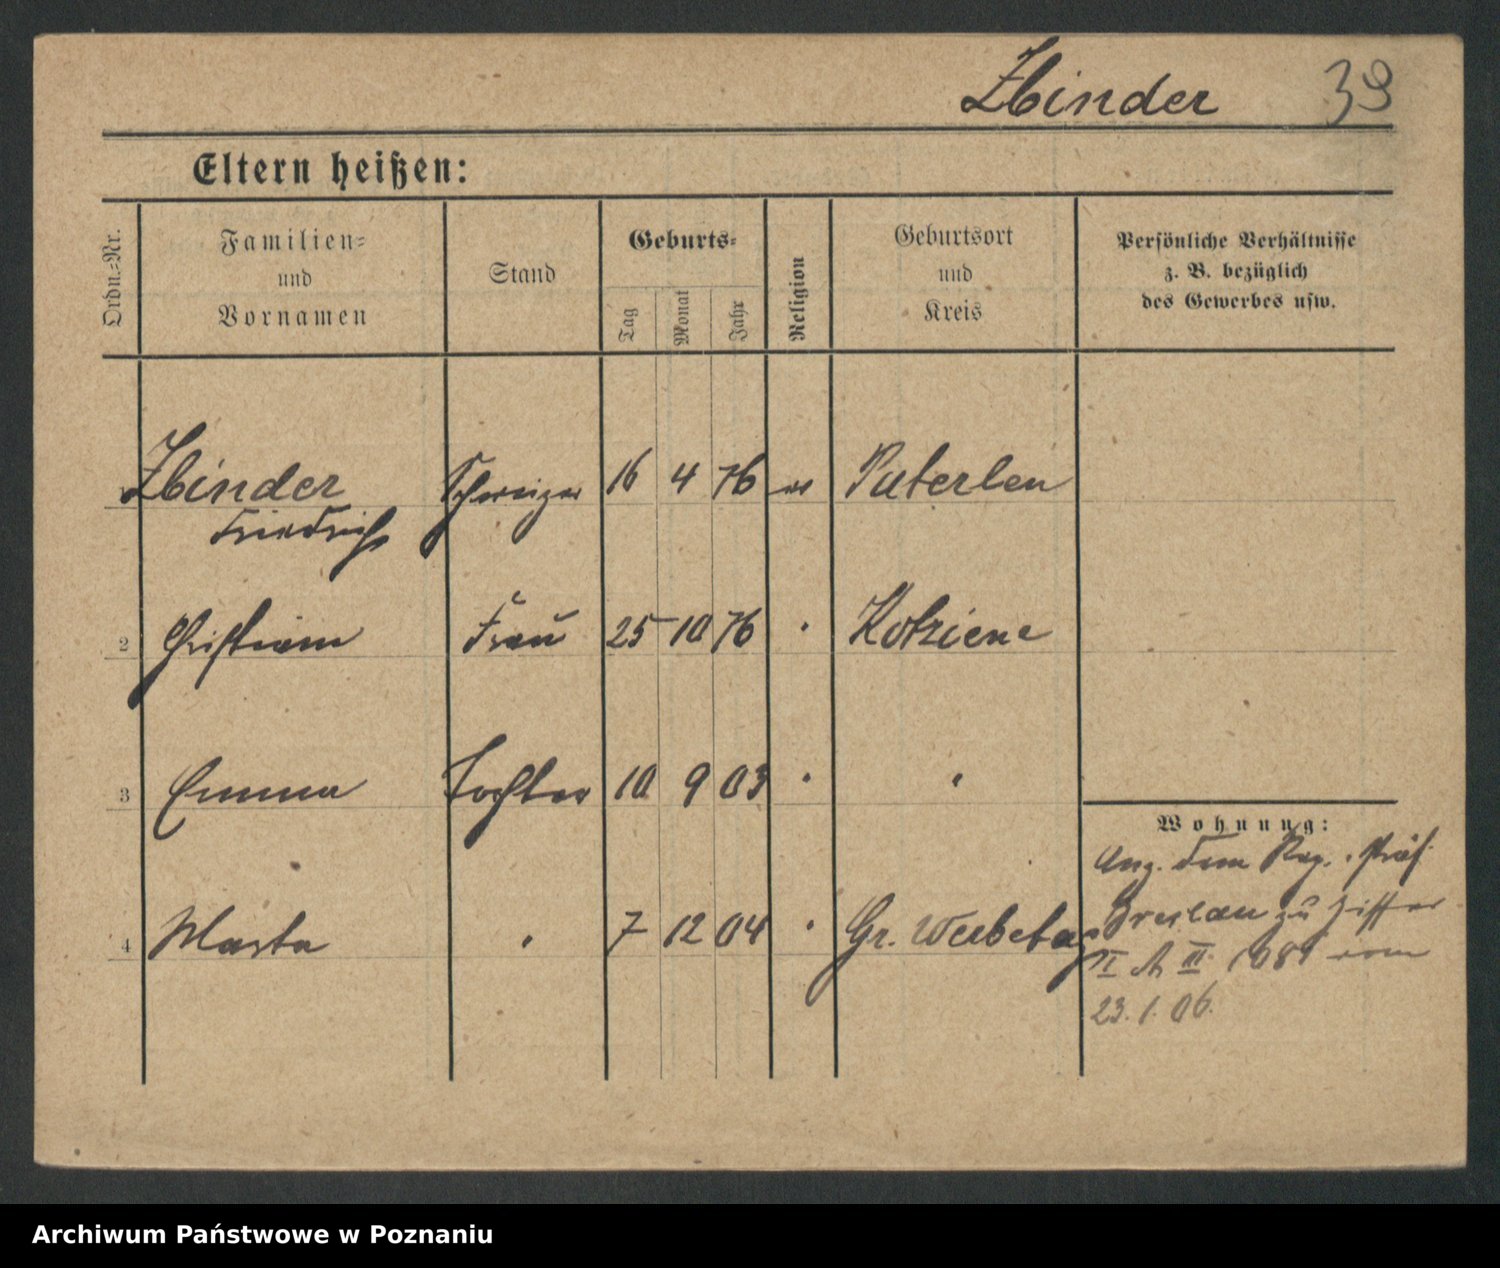 Zbinder 39
Eltern heißen:
Ordn.=Nr.
Familien=
und
Vornamen
Stand
Geburts=
Tag
Monat
Jahr
Religion
Geburtsort
und
Kreis
Persönliche Verhältnisse
z. B. bezüglich
des Gewerbes usw.
Zbinder Schweizer 16 4 76 ev Paterlen
Friedrich
2 Frau 25 10 76 " Kotziene
3 Emma Tochter 10 9 03 " "
4 Marta " 7 12 04 " Gr.
Wohnung:
Ang. dem Reg. Präs.
Breslau zu Ziffer
II A III 1089 vom
23. 1. 06.
Archiwum Państwowe w Poznaniu